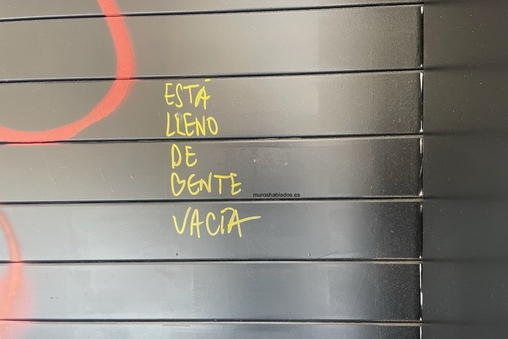 ESTÁ
LLENO
DE
GENTE
muroshablados.es
VACÍA